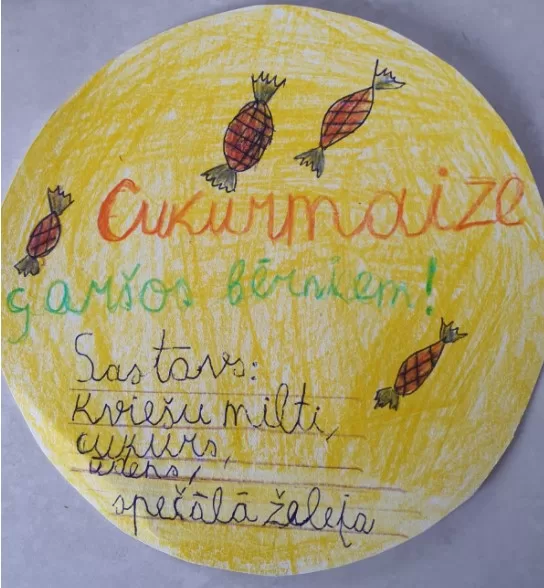 Cukurmaize
garšos bērniem!
Sastāvs:
kviešu milti,
cukurs,
ūdens,
spečālā želeja